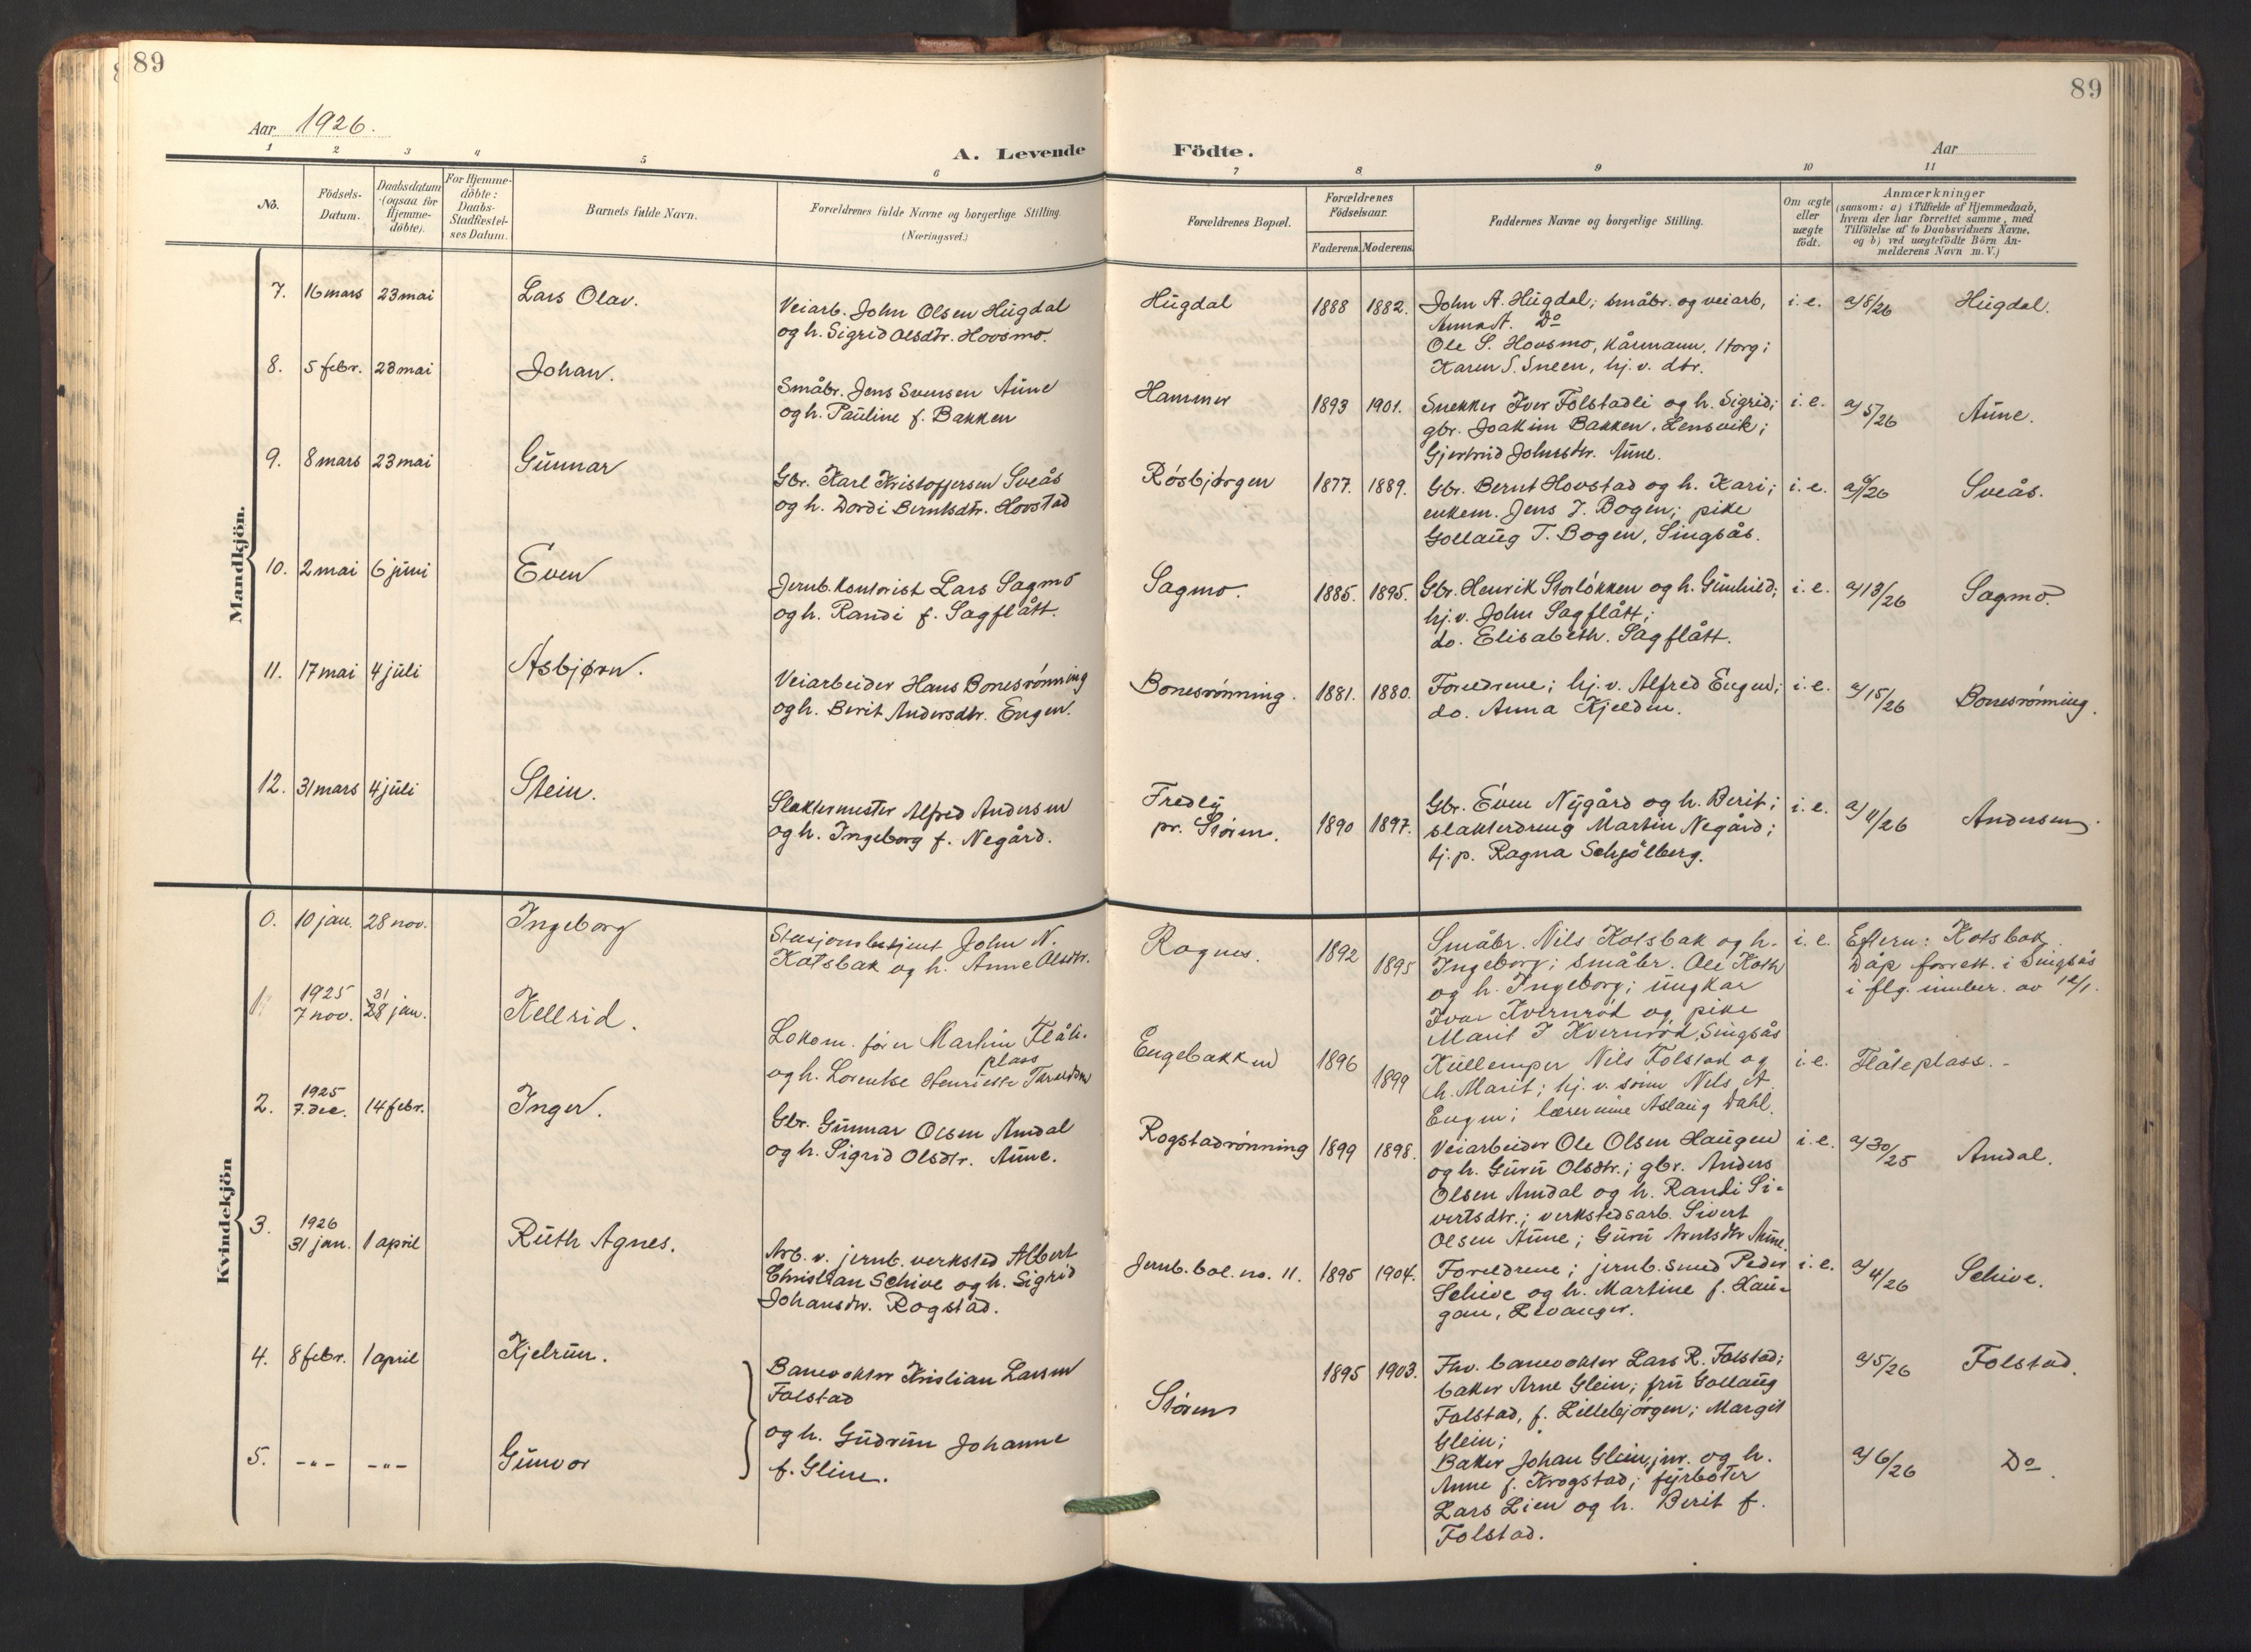 89
89
Aar 1926.
A. Levende Födte.
Aar
1 2 3 4 5 6 7 8 9 10 11
No.
Födsels-Datum.
Daabsdatum (ogsaa for Hjemme-döbte).
For Hjemme-döbte: Daabs-Stadfæstel-ses Datum.
Barnets fulde Navn.
Forældrenes fulde Navne og borgerlige Stilling.
(Næringsvei.)
Forældrenes Bopæl.
Forældrenes Födselsaar.
Faderens. Moderens.
Faddernes Navne og borgerlige Stilling.
Om ægte eller uægte födt.
Anmærkninger
(saasom: a) i Tilfælde af Hjemmedaab,
hvem der har forrettet samme, med
Tilföielse af to Daabsvidners Navne,
og b) ved uægtefödte Börn An-
melderens Navn m. V.)
Mandkjön.
7. 16 mars 23 mai Lars Olav.
Veiarb. John Olsen Hugdal
og h. Sigrid Olsdtr. Hovsmo.
Hugdal 1888 1882.
John A. Hugdal; småbr. og veiarb,
Anna A. Do
Ole S. Hovsmo, kårmann, Horg;
Karen S. Sneen, hj. v. dtr.
i. e. a/8/26 Hugdal.
8. 5 febr. 23 mai Johan.
Småbr. Jens Svensen Aune
og h. Pauline f. Bakken
Hammer 1893 1901.
Snekker Iver Folstadli og h. Sigrid;
gbr. Joakim Bakken, Lensvik;
Gjertrud Johnsdtr. Aune.
i. e. a/5/26 Aune.
9. 8 mars 23 mai Gunnar
Gbr. Karl Kristoffersen Sveås
og h. Dordi Berntsdtr. Hovstad
Røsbjørgen 1877. 1889.
Gbr. Bernt Hovstad og h. Kari;
enkem. Jens J. Bogen; pike
Gollaug T. Bogen, Singsås.
i. e. a/9/26 Sveås.
10. 2 mai 6 juni Even
Jernb. kontorist Lars Sagmo
og h. Randi f. Sagflått.
Sagmo. 1885. 1895.
Gbr. Henrik Storløkken og h. Gunhild;
hj. v. John Sagflått;
do. Elisabeth Sagflått.
i. e. a/13/26 Sagmo.
11. 17 mai 4 juli Asbjørn.
Veiarbeider Hans Bonesrønning
og h. Berit Andersdtr. Engen.
Bonesrønning. 1881. 1880.
Foreldrene; hj. v. Alfred Engen;
do. Anna Kjelden.
i. e. a/15/26 Bonesrønning.
12. 31 mars 4 juli Stein.
Slaktermester Alfred Andersen
og h. Ingeborg f. Negård.
Fredly
pr. Støren. 1890 1897.
Gbr. Even Nygård og h. Berit;
slakterdreng Martin Negård;
tj. p. Ragna Schjølberg.
i. e. a/11/26 Andersen.
Kvindekjön
0. 10 jan. 28 nov. Ingeborg
Stasjonsbetjent John N.
Kotsbak og h. Anne Olsdtr.
Rognes. 1892 1895
Småbr. Nils Kotsbak og h.
Ingeborg; småbr. Ole Koth
og h. Ingeborg; ungkar
Ivar Kvernrød og pike
Marit J Kvernrød, Singsås
i. e. Eftern: Kotsbak.
Dåp forrett. i Singsås
i flg. innber. av 12/1.
1. 1925
7 nov. 31 28 jan. Kellrid.
Lokom. fører Martin Flåte-
plass
og h. Lorentse Henriette
Engebakken 1896 1899
Kullemper Nils Folstad og
h. Marit; hj. v. sønn Nils A.
Engen; lærerinne Aslaug Dahl.
i. e. Flåteplass. -
2. 1925
7. dec. 14 febr. Inger.
Gbr. Gunnar Olsen Amdal
og h. Sigrid Olsdtr. Aune.
Rogstadrønning 1899 1898.
Veiarbeider Ole Olsen Haugen
og h. Guru Olsdtr.; gbr. Anders
Olsen Amdal og h. Randi Si-
vertsdtr.; verkstedsarb. Sivert
Olsen Aune; Guru Arntsdtr Aune.
i. e. a/30/25 Amdal.
3. 1926
31 jan. 1 april Ruth Agnes.
Arb. v. jernb. verksted Albert
Christian Schive og h. Sigrid
Johansdtr. Rogstad.
Jernb. bol. no. 11. 1895 1904.
Foreldrene; jernb. smed Peder
Schive og h. Martine f. Hau-
gan, Levanger.
i. e. a/4/26 Schive.
4. 8 febr. 1 april Kjelrun.
Banevokter Kristian Larsen
Folstad
og h. Gudrun Johanne
f. Glein.
Støren 1895 1903.
Fhv. banevokter Lars R. Folstad;
baker Arne Glein; fru Gollaug
Folstad, f. Lillebjørgen; Margit
Glein;
a/5/26 Folstad.
5. -"- -"- Gunvor
Baker Johan Glein jnr. og h.
Anne f. Krogstad; fyrbøter
Lars Lien og h. Berit f.
Folstad.
a/6/26 Do.